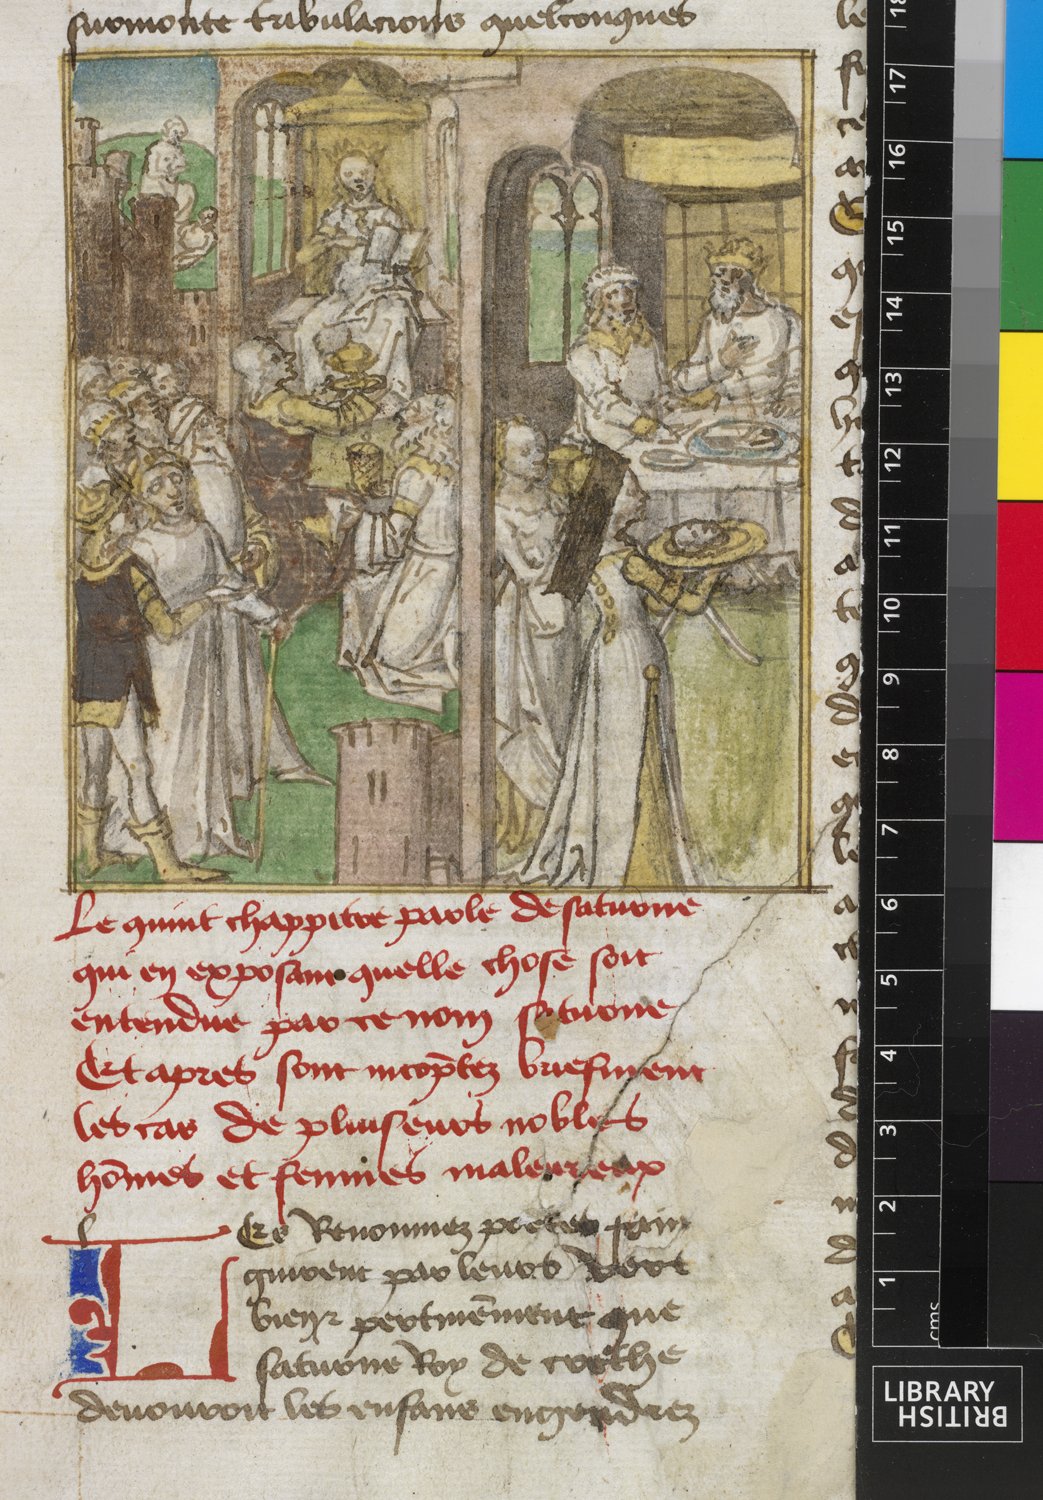 surmonte tribulacions quelconques
Le quint chappitre parle de saturne
qui en exposant quelle chose soit
entendue par ce nom saturne
Et apres sont incoptez briefment
les cas de pluiseurs nobles
hommes et femmes maleureux
Les Renommez poetes fain
quirent par leurs vers
bien pertinemment que
saturne Roy de crethe
devouroit les enfans engendrez
18
17
16
15
14
13
12
11
10
9
8
7
6
5
4
3
2
1
cms
LIBRARY
BRITISH